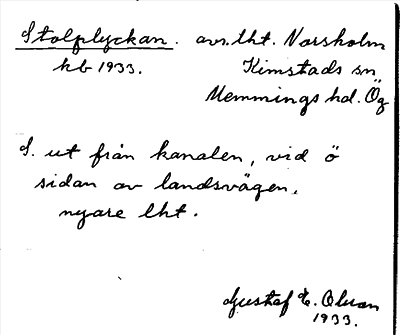 Stolplyckan. avs. lht. Norsholm
kb 1933. Kimstads sn
Memmings hd. Ög
S. ut från kanalen, vid ö
sidan av landsvägen,
nyare lht.
Gustaf E. Olson
1933.